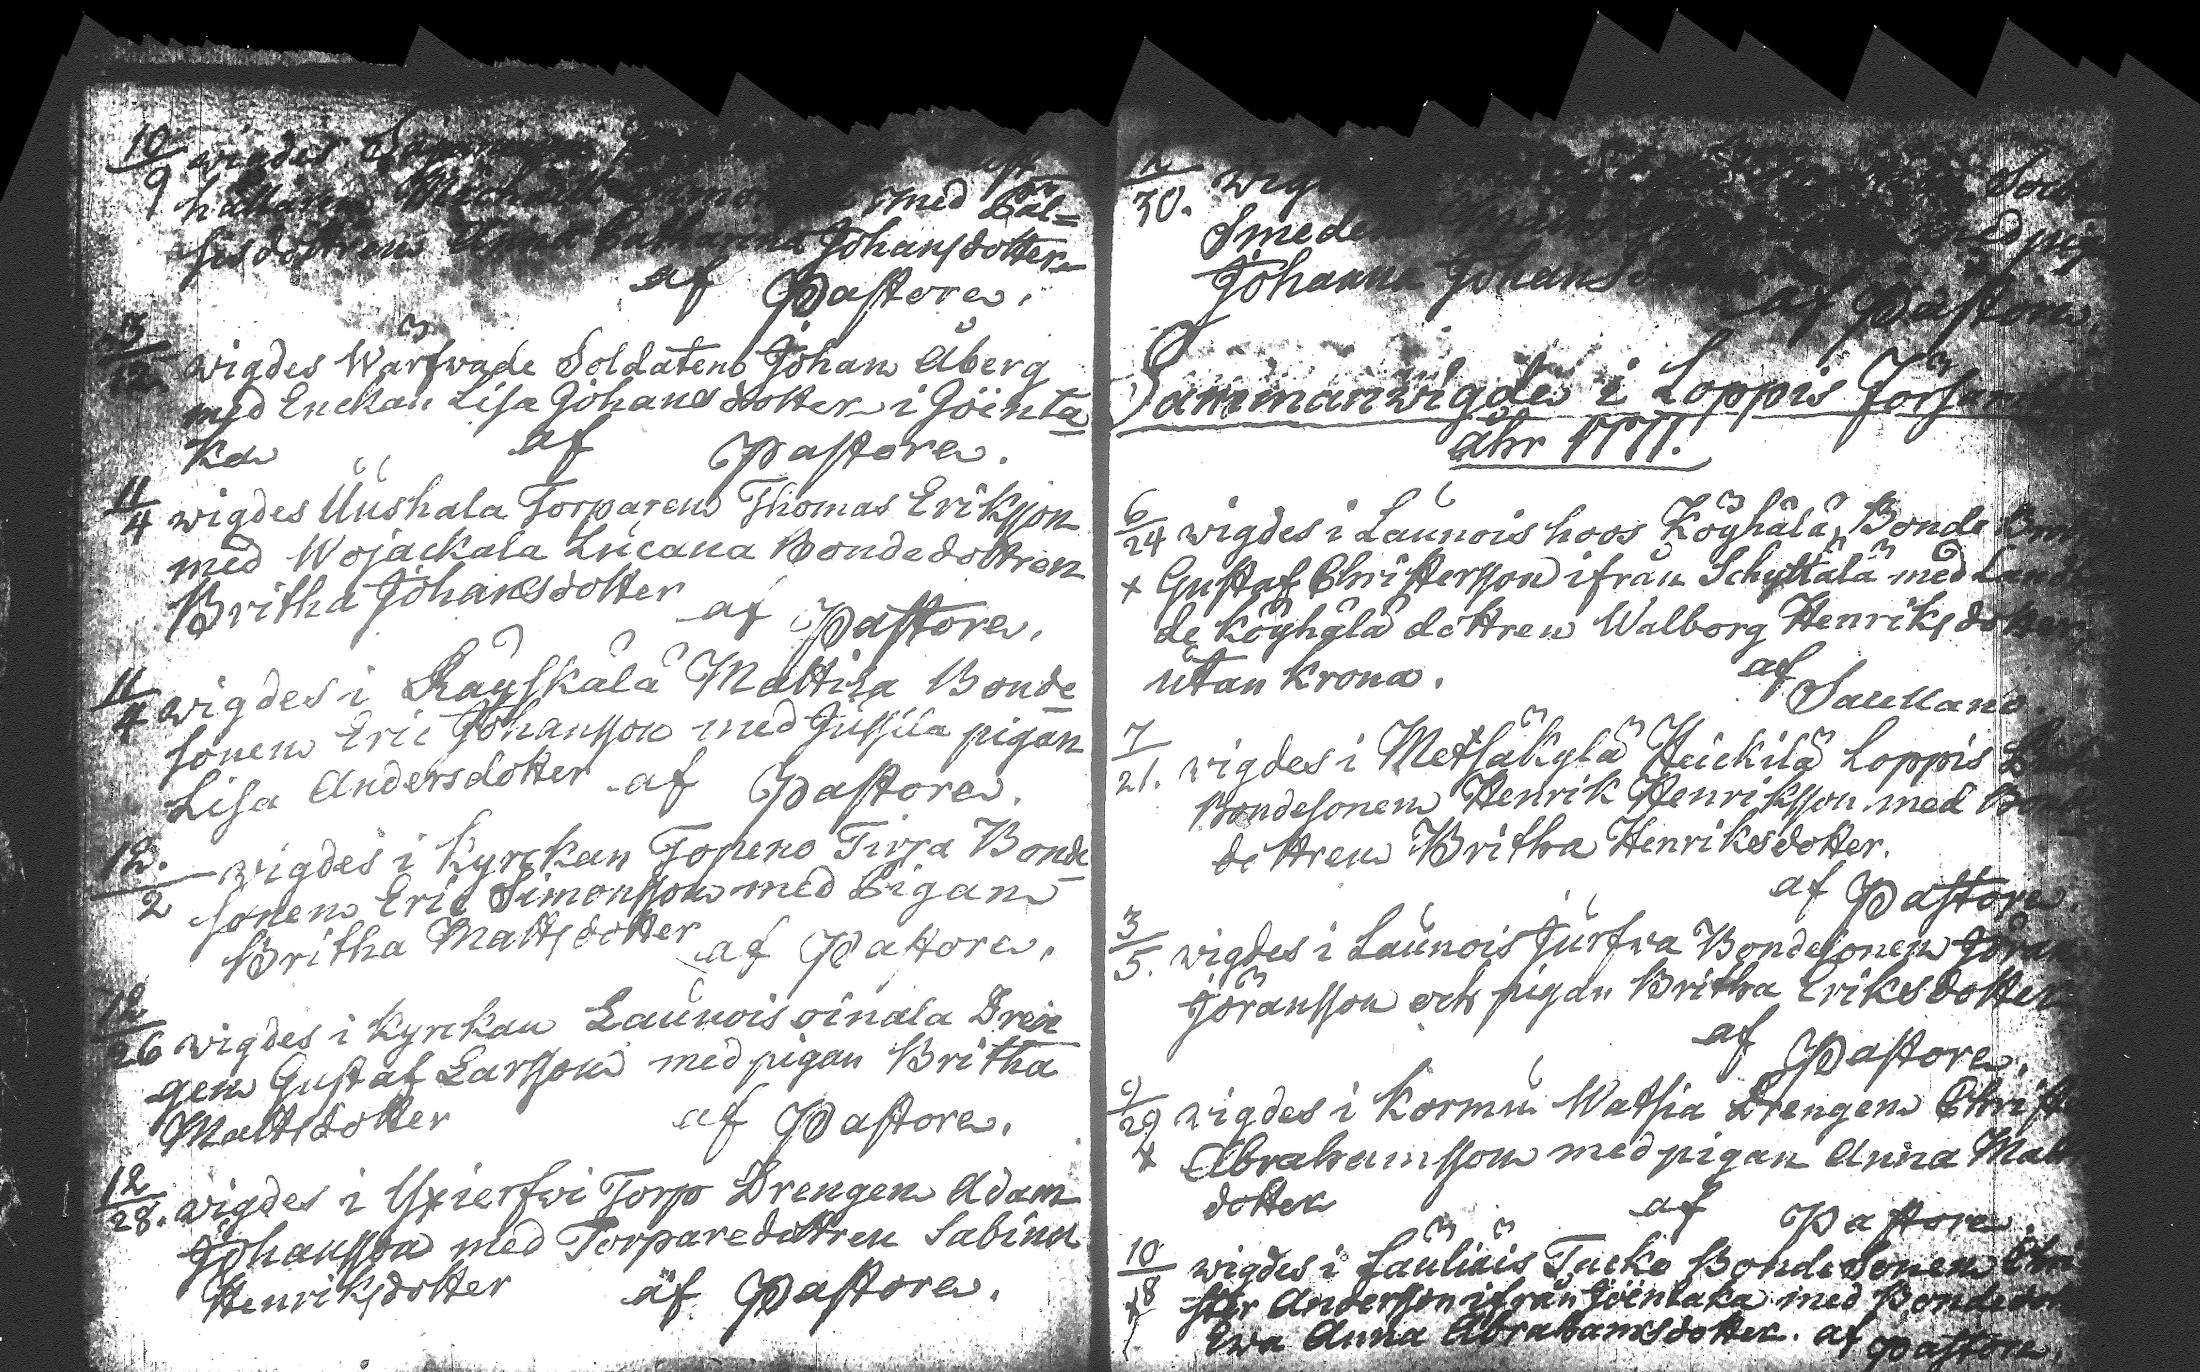 10/9 wigdes
hållaren Michaell med Bal=
sis dottren Anna Catharina Johansdotter
af Pastore.
3/12. wigdes Wärfwade Soldaten Johan Åberg
med Enckan Lisa Johansdotter i Jöenta=
ka af Pastore.
11/4 wigdes Uushala Torparen Thomas Eriksson
med Wojackala Lucana Bondedottren
Britha Johansdotter af Pastore.
11/4 wigdes i Räyskälä Mattila Bonde=
sonen Eric Johansson med Jussila pigan
Lisa Andersdotter af Pastore.
12./2 wigdes i Kyrckan Topeno Tirja Bonde=
sonen Eric Simonsson med Pigan
Britha Mattsdotter af Pastore.
12/26 wigdes i Kyrckan Launois oinala Dren=
gen Gustaf Larsson med pigan Britha
Mattsdotter af Pastore.
12/28. wigdes i Torp Drengen Adam
Johansson med Torparedottren Sabina
Henriksdotter af Pastore.
30. wig
Smeden med pig
Johanna Johans af Pastore.
Sammanwigde i Loppis Församl
åhr 1771.
6/24 wigdes i Launois hoos Köyhälä, Bonde
+ Gustaf Christersson ifrån Schyttälä med Land
de Köyhälä dottren Walborg Henriksdotter,
utan Krona. af
Saellano.
7/21. wigdes i Metsäkylä Heickilä Loppis
Bondesonen Henrik Henriksson med Bond
dottren Britha Henriksdotter.
af Pastore.
3/5. wigdes i Launois Jurfwa Bondesonen Jöran
Jöransson och pigan Britha Eriksdotter
af Pastore.
9/29 wigdes i Kormu Watsia Drengen Christ
+ Abrahamsson med pigan Anna Matt
dotter af Pastore.
10/8 wigdes i Läyliäis Tucko Bonde Sonen Chri
+8 ster Andersson ifrån Jöentaka med Bondedot
Ewa Anna Abrahamsdotter. af Pastore.